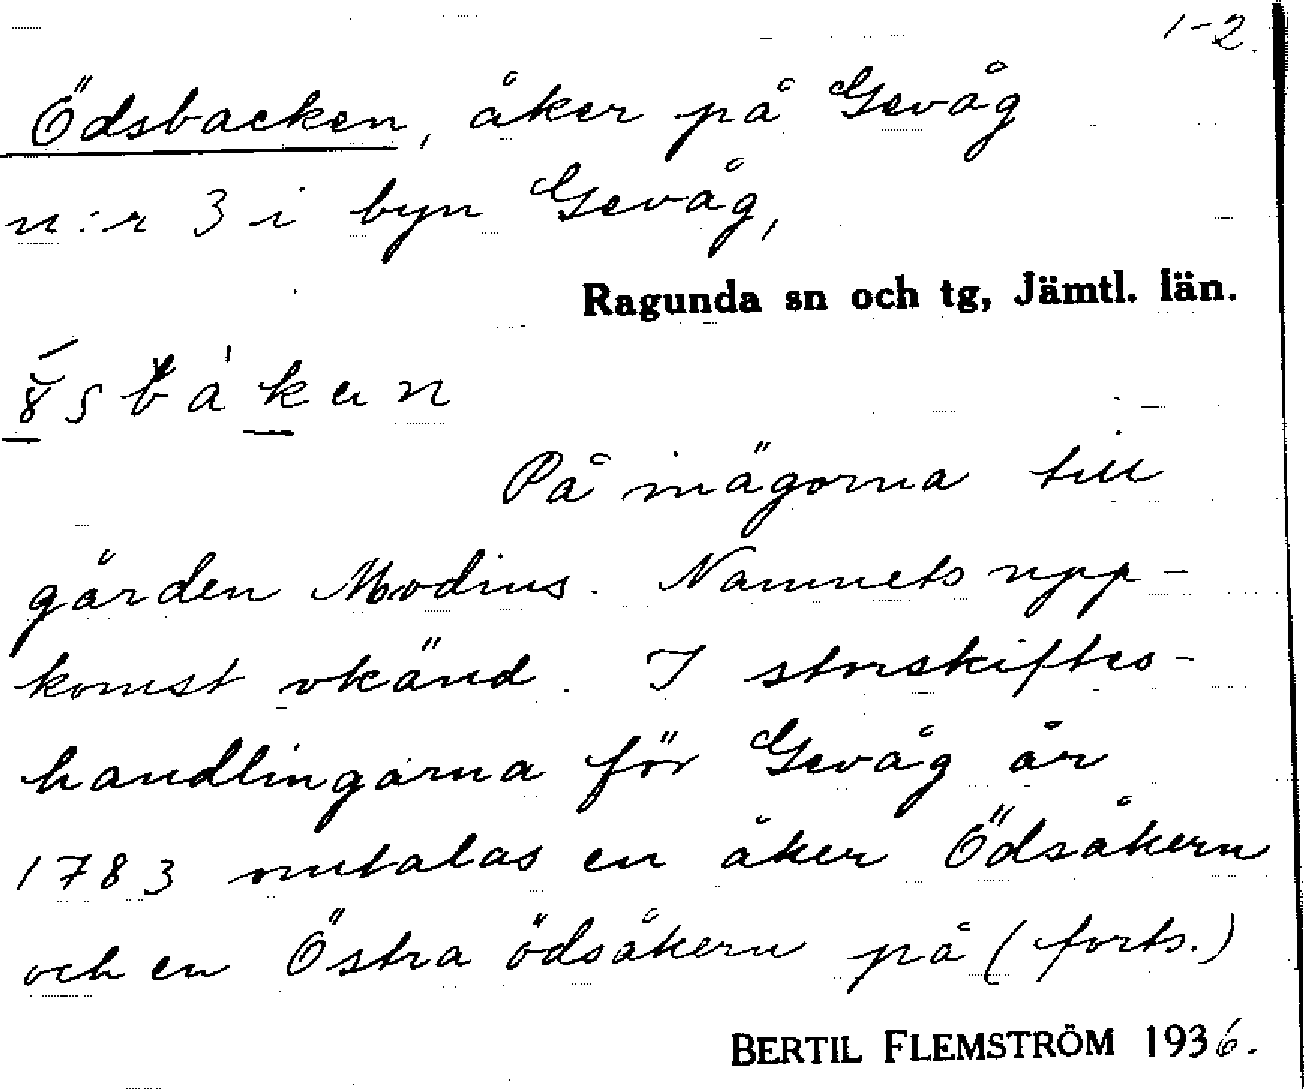 1-2.
Ödsbacken, åker på Gevåg
n:r 3 i byn Gevåg,
Ragunda sn och tg, Jämtl. län.
På inägorna till
gården Modins. Namnets upp-
komst okänd. I storskiftes-
handlingarna för Gevåg år
1783 omtalas en åker Ödsåkern
och en Östra ödsåkern på (forts.)
BERTIL FLEMSTRÖM 1936.